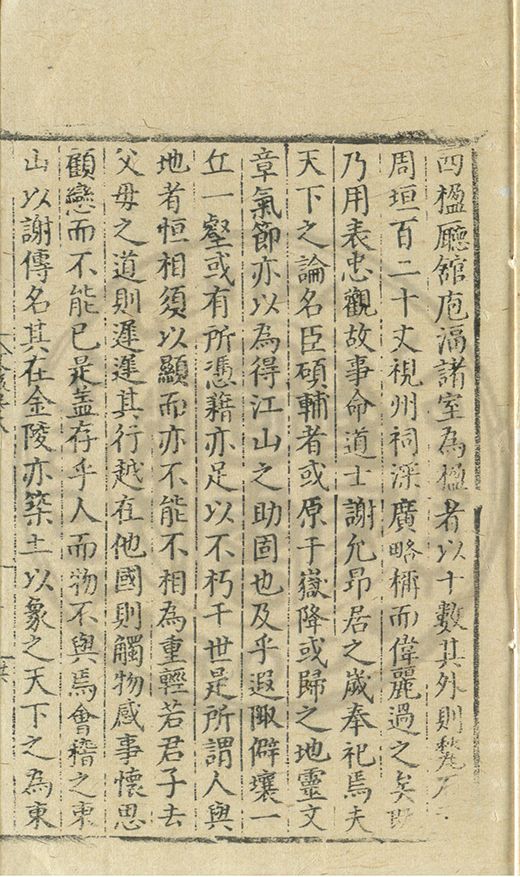 四楹廳舘庖湢諸室為楹者以十數其外則繚
周垣百二十丈視州祠深廣略稱而偉麗過之矣既
乃用表忠觀故事命道士謝允昂居之歲奉祀焉夫
天下之論名臣碩輔者或原于嶽降或歸之地靈文
章氣節亦以為得江山之助固也及乎遐陬僻壤一
丘一壑或有所憑藉亦足以不朽千世是所謂人與
地者恒相須以顯而亦不能不相為重輕若君子去
父母之道則遲遲其行越在他國則觸物感事懷思
顧戀而不能已是盖存乎人而物不與焉會稽之東
山以謝傳名其在金陵亦築土以象之天下之為東